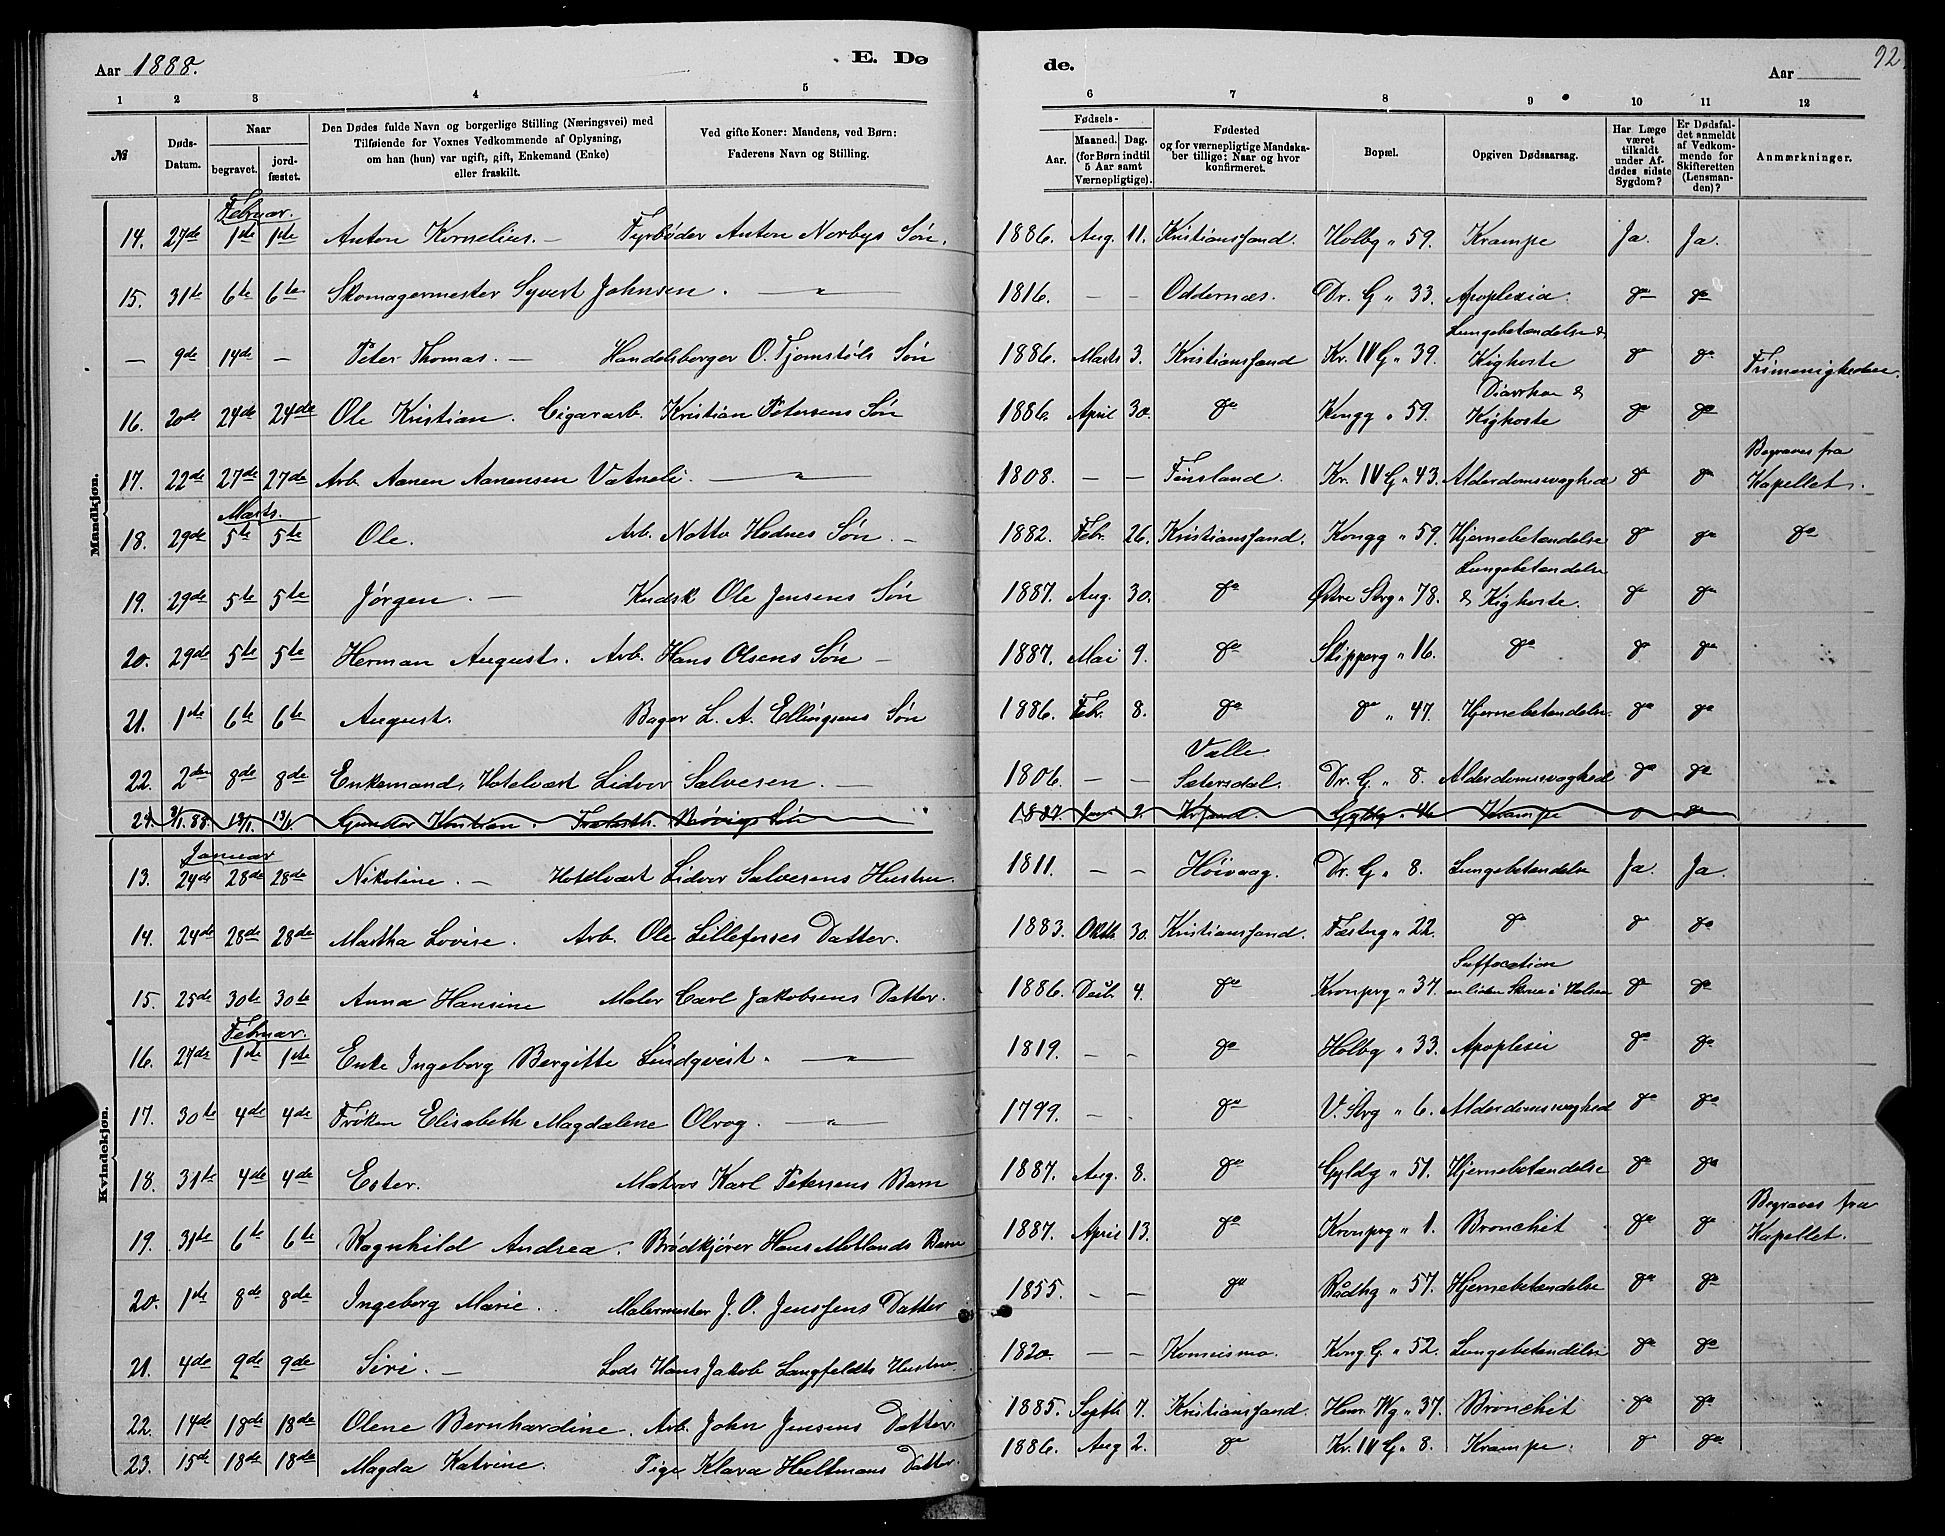 Aar 1888. E. Dø de. Aar 92.
1 2 3 4 5 6 7 8 9 10 11 12
№ Døds-Datum. Naar begravet. jord-fæstet. Den Dødes fulde Navn og borgerlige Stilling (Næringsvei) med Tilføiende for Voxnes Vedkommende af Oplysning, om han (hun) var ugift, gift, Enkemand (Enke) eller fraskilt. Ved gifte Koner: Mandens, ved Børn: Faderens Navn og Stilling. Fødsels- Aar. Maaned. Dag. (for Børn indtil 5 Aar samt Værnepligtige). Fødested og for værnepligtige Mandska-ber tillige: Naar og hvor konfirmeret. Bopæl. Opgiven Dødsaarsag. Har Læge været tilkaldt under Af-dødes sidste Sygdom? Er Dødsfal-det anmeldt af Vedkom-mende for Skifteretten (Lensman-den)? Anmærkninger.
Mandkjøn.
Februar.
14. 27de 1ste 1ste Anton Kornelius. – Fyrbøder Anton Norbys Søn. 1886. Aug. 11. Kristiansand. Holbg " 59. Krampe Ja. Ja.
15. 31te 6te 6te Skomagermester Syvert Johnsen. — " — 1816. – – Oddernæs. Dr. G " 33. Apoplexia. do do
– 9de 14de – Peter Thomas. – Handelsborger O. Tjomstøls Søn 1886. Marts 3. Kristianssand Kr. IV G " 39. Lungebetændelse & Kighoste do do Frimenigheden.
16. 20de 24de 24de Ole Kristian. Cigararb. Kristian Petersens Søn 1886. April 30. do Kongg " 59. Diarrhoe & Kighoste do do
17. 22de 27de 27de Arb. Aanen Aanensen Vatneli. — " — 1808. – – Finsland. Kr. IV G " 43. Alderdomssvaghed do do Begraves fra Kapellet.
Marts.
18. 29de 5te 5te Ole. Arb. Notto Hodnes Søn. – 1882. Febr. 26. Kristianssand. Kongg " 59. Hjernebetændelse do do do
19. 29de 5te 5te Jørgen. – Kudsk Ole Jensens Søn 1887. Aug. 30. do Østre Strg " 78. Lungebetændelse & Kighoste. do do
20. 29de 5te 5te Herman August. Arb. Hans Olsens Søn – 1887. Mai 9. do Skipperg " 16. do do do
21. 1ste 6te 6te August. Bager L. A. Ellingsens Søn 1886. Febr. 8. do do " 47. Hjernebetændelse. do do
22. 2den 8de 8de Enkemand, Hotelvært Lidvor Salvesen. – 1806. – – Valle Sætersdal. Dr. G. " 8. Alderdomssvaghed do do
24. 3/1 88. 13/1. 13/1. Kristian. Søn 1887 2. Krsand. Gyldg " 46 Krampe
Kvindekjøn.
Januar
13. 24de 28de 28de Nikoline. – Hotelvært Lidvor Salvesens Hustru. 1811. – – Høivaag. Dr. G " 8. Lungebetændelse Ja. Ja.
14. 24de 28de 28de Martha Lovise. Arb. Ole Lillefosses Datter. 1883. Oktb. 30. Kristianssand. Fæstng " 22. do do do
15. 25de 30te 30te Anna Hansine Maler Carl Jakobsens Datter. 1886. Decb. 4. do Kronprg " 37. Suffocation en liden Skrue i Halsen do do
Februar.
16. 27de 1ste 1ste Enke Ingeborg Bergitte Lindqveist. — " — 1819. – – do Holbg " 33. Apoplexi do do
17. 30te 4de 4de Frøken Elisabeth Magdalene Olrog. — " — 1799. – – do V. Strg " 6. Alderdomssvaghed do do
18. 31te 4de 4de Ester. Matros Karl Petersens Barn 1887. Aug. 8. do Gyldg " 51. Hjernebetændelse do do
19. 31te 6te 6te Ragnhild Andrea. Brødkjører Hans Motlands Barn 1887. April 13. do Kronprg " 1. Bronchit do do Begraves fra Kapellet.
20. 1ste 8de 8de Ingeborg Marie. Malermester J. O. Jenssens Datter 1855. – – do Rådhg " 57. Hjernebetændelse do do
21. 4de 9de 9de Siri. – Lods Hans Jakob Langfeldts Hustru. 1820. – – Konnismo. Kong G. " 52. Lungebetændelse do do
22. 14de 18de 18de Olene Bernhardine. Arb. John Jensens Datter. 1885. Septb. 7. Kristianssand. Henr. Wg " 37. Bronchit do do
23. 15de 18de 18de Magda Katrine. Pige Klara Hultmans Datter. 1886. Aug 2. do Kr. IV G " 8. Krampe. do do